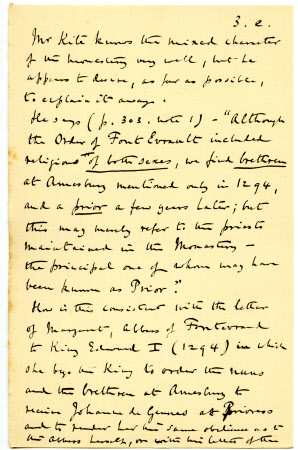 3. e.
Mr Kite knows the mixed character
of the monastery very well, but he
appears to desire, as far as possible,
to explain it away.
He says (p. 303. note 1) - "Although
the Order of Font Evrault included
religious of both sexes, we find brethren
at Amesbury mentioned only in 1294,
and a prior a few years later; but
this may merely refer to the priests
maintained in the Monastery -
the principal one of whom may have
been known as Prior."
How is this consistent with the letter
of Margaret, Abbess of Fontevraud
to King Edward I (1294) in which
she begs the King to order the nuns
and the brethren at Amesbury to
receive Johanna de Genes as Prioress
and to render her the same obedience as to
the abbess herself, or with the letter of the